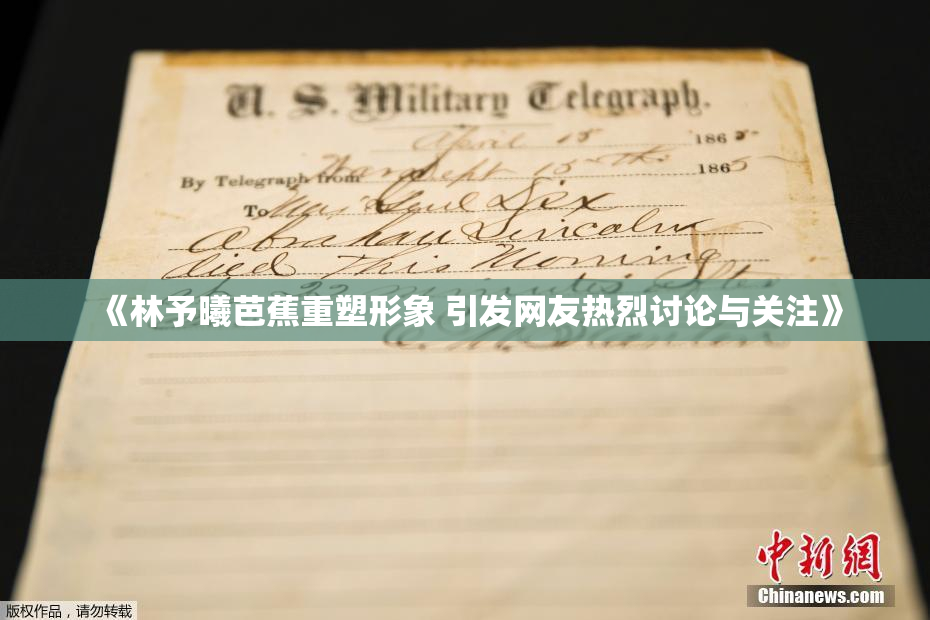 U. S. Military Telegraph.
April 15 1865
By Telegraph from War Dept 15th 1865
To Maj Genl Dix
Abraham Lincoln
died this Morning
at 22 minutes after
《林予曦芭蕉重塑形象 引发网友热烈讨论与关注》
E. M. Stanton
中新网
Chinanews.com
版权作品，请勿转载